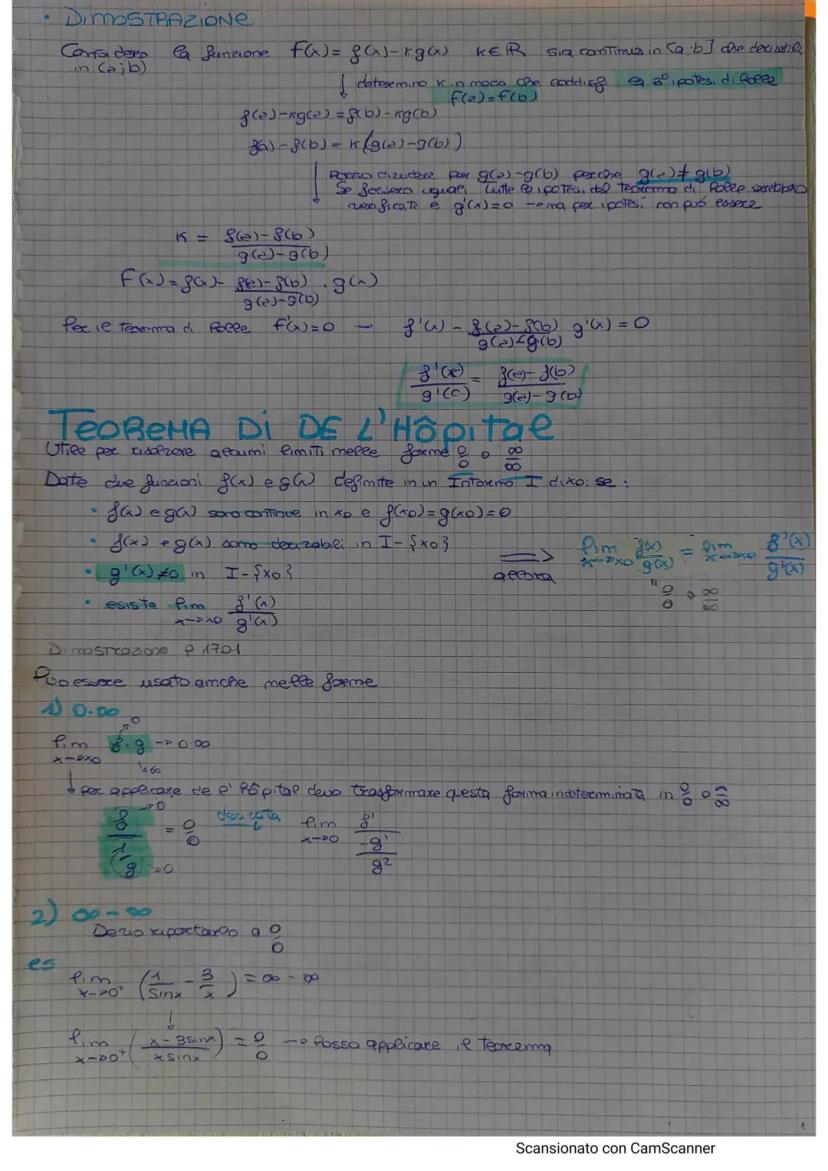 • DIMOSTRAZIONE
Considero la funzione F(x) = f(x) - kg(x) k∈R sia continua in [a;b] che derivabile
in (a;b)
↓ determino k in modo che soddisfi la 3° ipotesi di Rolle
F(a) = F(b)
f(a) - kg(a) = f(b) - kg(b)
f(a) - f(b) = k (g(a) - g(b))
Posso dividere per g(a) - g(b) perché g(a) ≠ g(b)
Se fossero uguali tutte le ipotesi del teorema di Rolle sarebbero
verificate e g'(x) = 0 → ma per ipotesi non può essere
k = f(a) - f(b) / g(a) - g(b)
F(x) = f(x) - f(a) - f(b) / g(a) - g(b) · g(x)
Per il teorema di Rolle F'(x) = 0 → f'(x) - f(a) - f(b) / g(a) - g(b) g'(x) = 0
f'(c) / g'(c) = f(a) - f(b) / g(a) - g(b)
TEOREMA DI DE L'Hôpital
Utile per risolvere alcuni limiti nelle forme 0/0 o ∞/∞
Date due funzioni f(x) e g(x) definite in un Intorno I di x0: se:
• f(x) e g(x) sono continue in x0 e f(x0) = g(x0) = 0
• f(x) e g(x) sono derivabili in I - {x0}
• g'(x) ≠ 0 in I - {x0}
• esiste lim x→x0 f'(x) / g'(x)
⟹ allora lim x→x0 f(x) / g(x) = lim x→x0 f'(x) / g'(x)
" 0/0 o ∞/∞
Dimostrazione p 1701
Può essere usato anche nelle forme
1) 0·∞
lim x→x0 f·g → 0·∞
↓ per applicare de l'Hôpital devo trasformare questa forma indeterminata in 0/0 o ∞/∞
f / 1/g = 0/0 derivata lim x→0 f' / -g'/g²
2) ∞ - ∞
Devo riportarlo a 0/0
es
lim x→0⁺ (1/sinx - 3/x) = ∞ - ∞
↓
lim x→0⁺ (x - 3sinx / x sinx) = 0/0 → Posso applicare il teorema
Scansionato con CamScanner